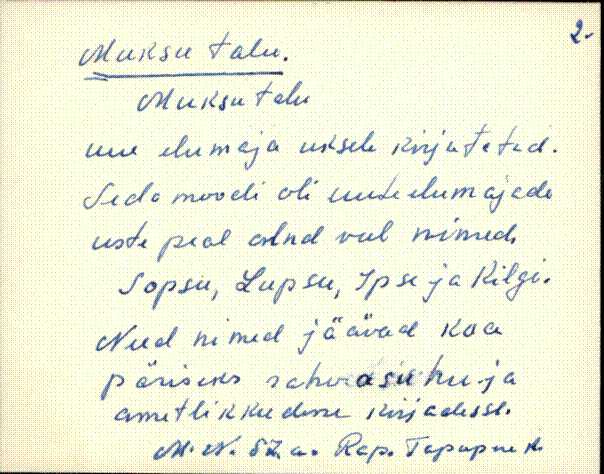 2.
Muksu talu.
Muksu talu
uue elumaja uksele kirjutatud.
Seda moodi oli uute elumajade
uste peal olnd veel nimed
Sopsu, Lupsu, Ipse ja Kilgi.
Need nimed jäävad koa
päriseks rahva suhu ja
ametlikkudese kirjadesse.
M. N. 57. a. Rap.